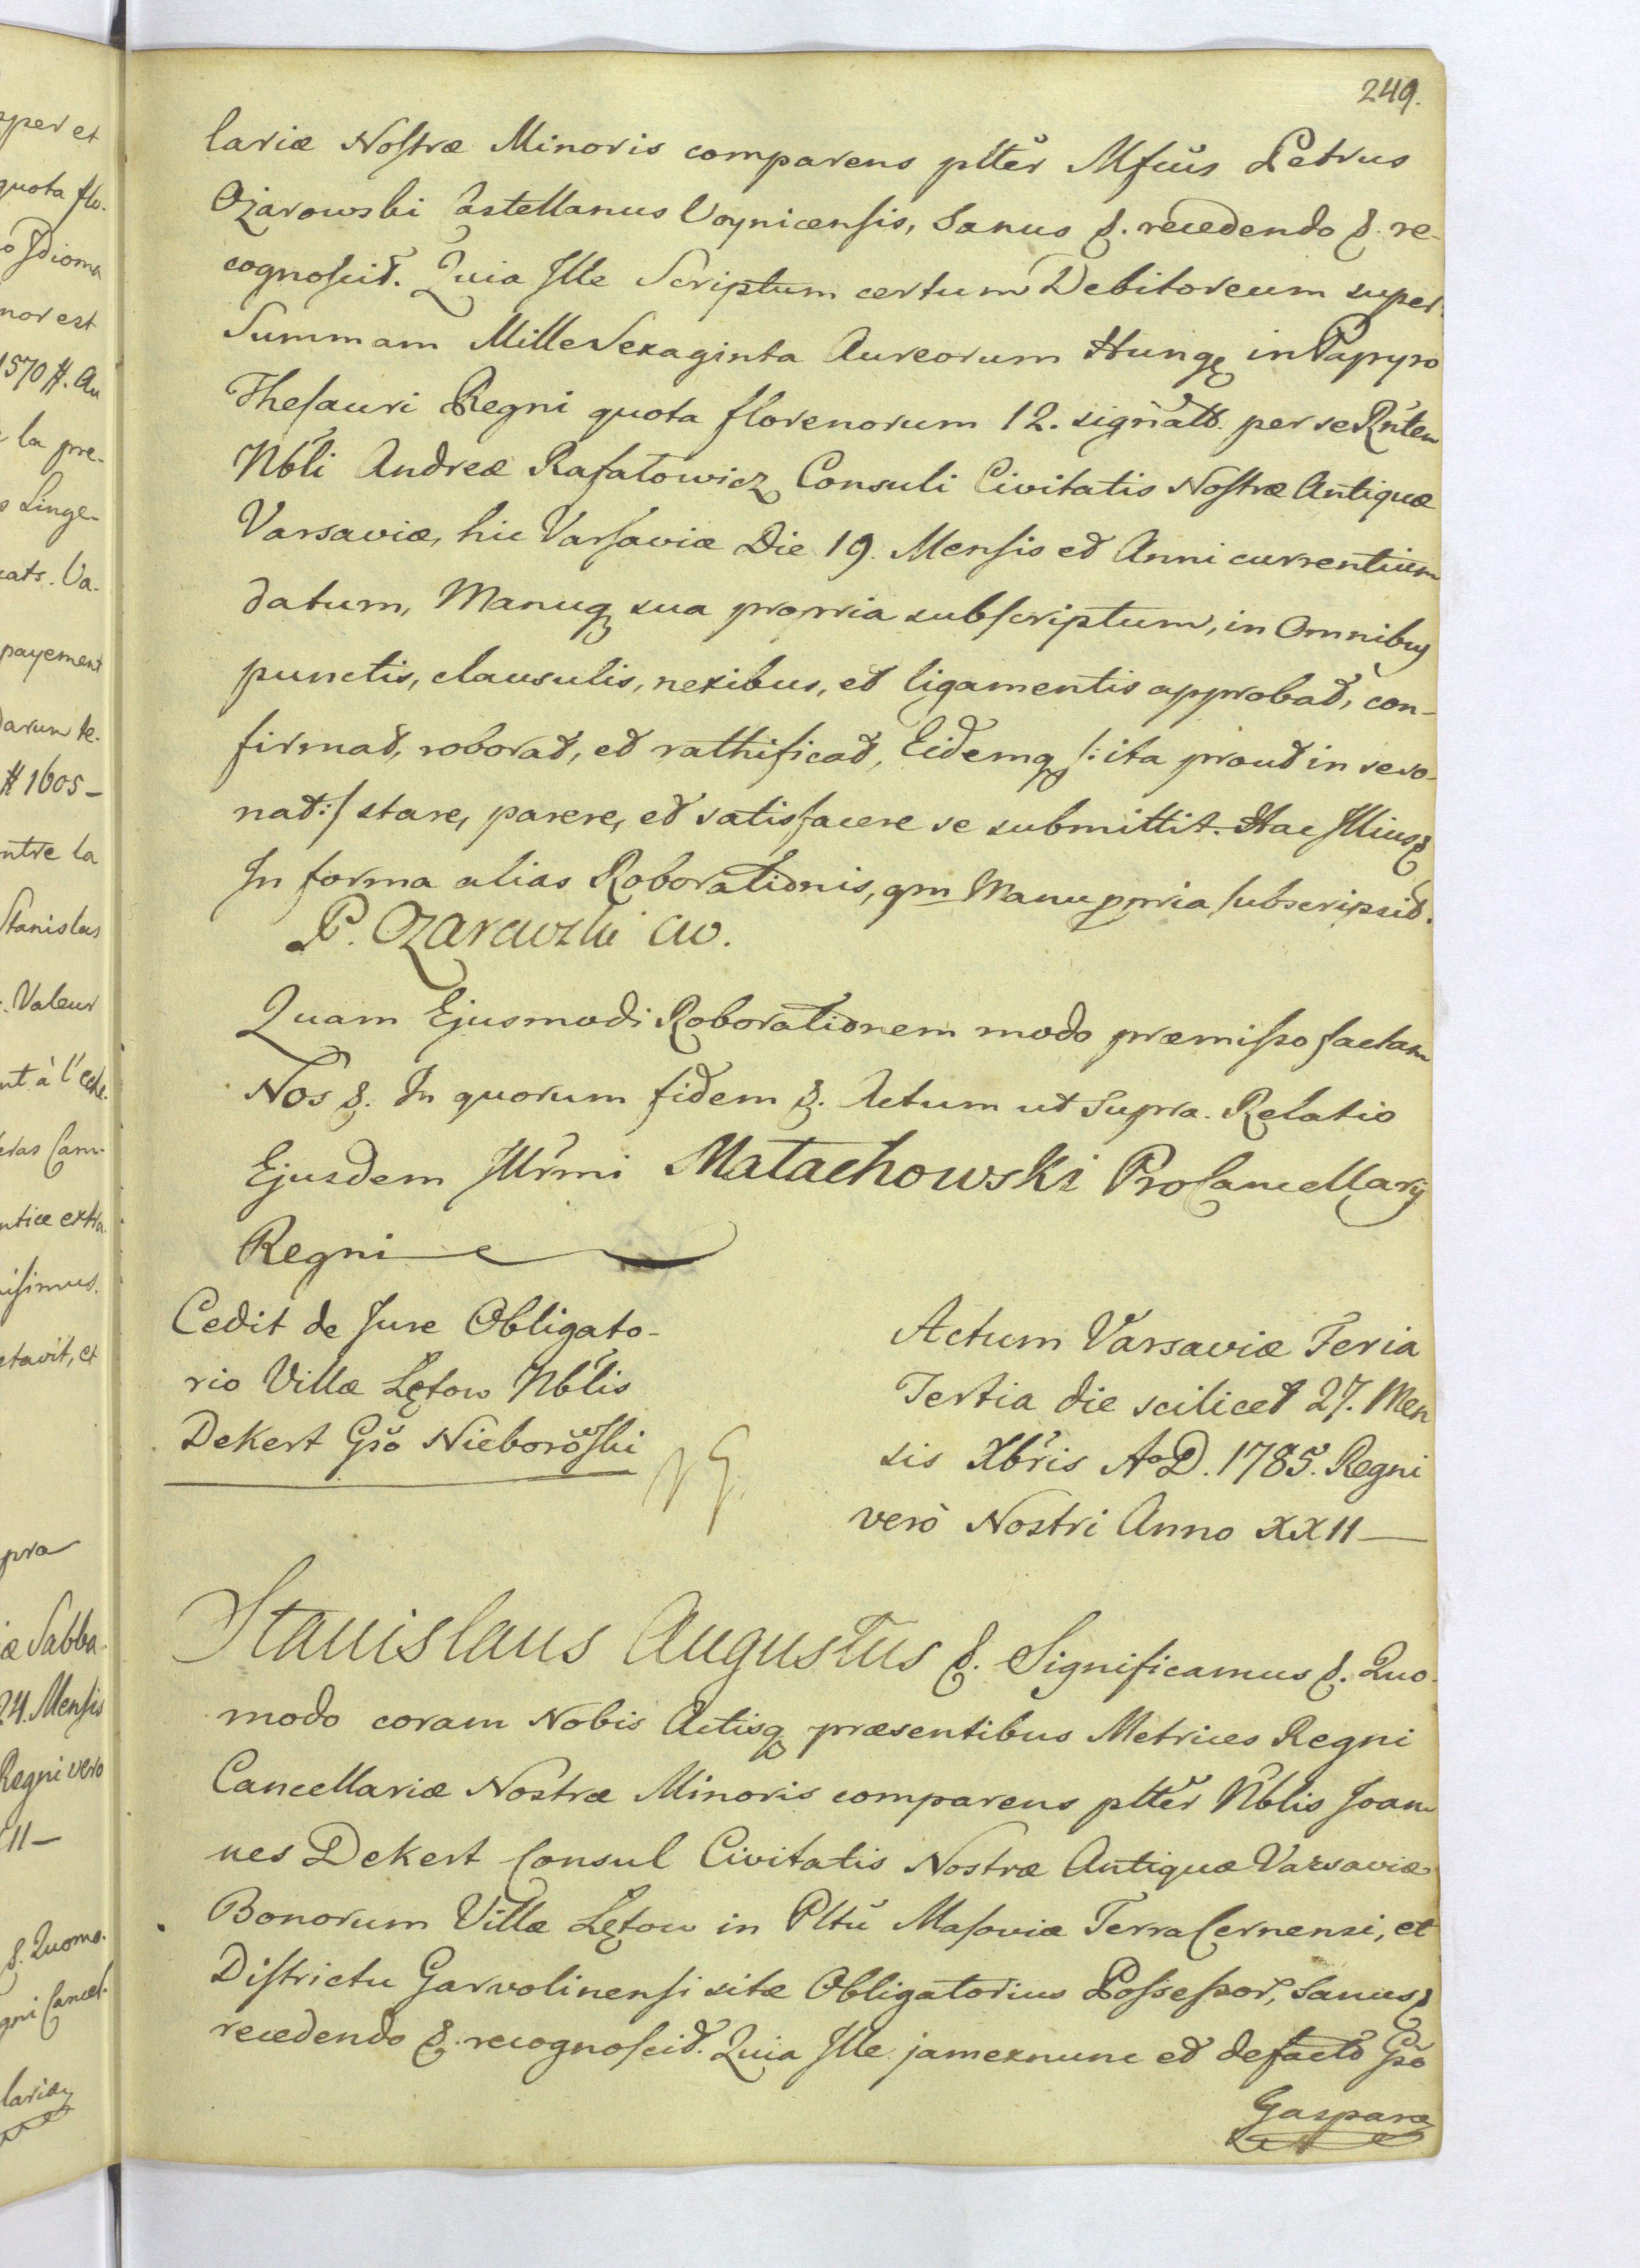 249.
lariæ Nostræ Minoris comparens pltter Mfcus Petrus
Ożarowski Castellanus Voynicensis, Sanus &. recedendo &. re-
cognoscit. Quia Ille Scriptum certum Debitoreum super
Summam Mille Sexaginta Aureorum Hungq in Papyro
Thesauri Regni quota florenorum 12. signato per se Rntem
Nbli Andreæ Rafałowicz Consuli Civitatis Nostræ Antiquæ
Varsaviæ, hic Varsaviæ Die 19. Mensis et Anni currentium
datum, Manuq sua propria subscriptum, in Omnibus
punctis, clausulis, nexibus, et ligamentis approbat, con-
firmat, roborat, et rathificat, Eidemq /: ita prout in se so-
nat :/ stare, parere, et satisfacere se submittit. Hac Illius &
In forma alias Roborationis, qm Manu ppria subscripsit.
P. Ożarowski CW.
Quam Ejusmodi Roborationem modo præmisso factam
Nos &. In quorum fidem &. Actum ut Supra. Relatio
Ejusdem Illrmi Małachowski ProCancellarij
Regni
Cedit de Jure Obligato-
rio Villæ Lętow Nblis
Dekert Gso Nieboroski
Actum Varsaviæ Feria
Tertia die scilicet 27. Men
sis Xbris Ao D. 1785. Regni
verò Nostri Anno XXII
Stanislaus Augustus &. Significamus &. Quo-
modo coram Nobis Actisq præsentibus Metrices Regni
Cancellariæ Nostræ Minoris comparens pltter Nblis Joan
nes Dekert Consul Civitatis Nostræ Antiquæ Varsaviæ
Bonorum Villæ Lętow in Pltu Masoviæ Terra Cernensi, et
Districtu Garvolinensi sitæ Obligatorius Possessor, Sanus &
recedendo &. recognoscit. Quia Ille jam exnunc et defacto Gso
Gaspara